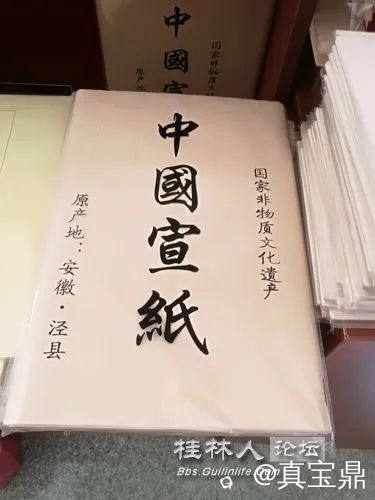 国家非物质文
中國宣
原产地
国家非物质文化遗产
中國宣紙
原产地：安徽·泾县
桂林人论坛
Bbs.Guilinlife.Com
@真宝鼎